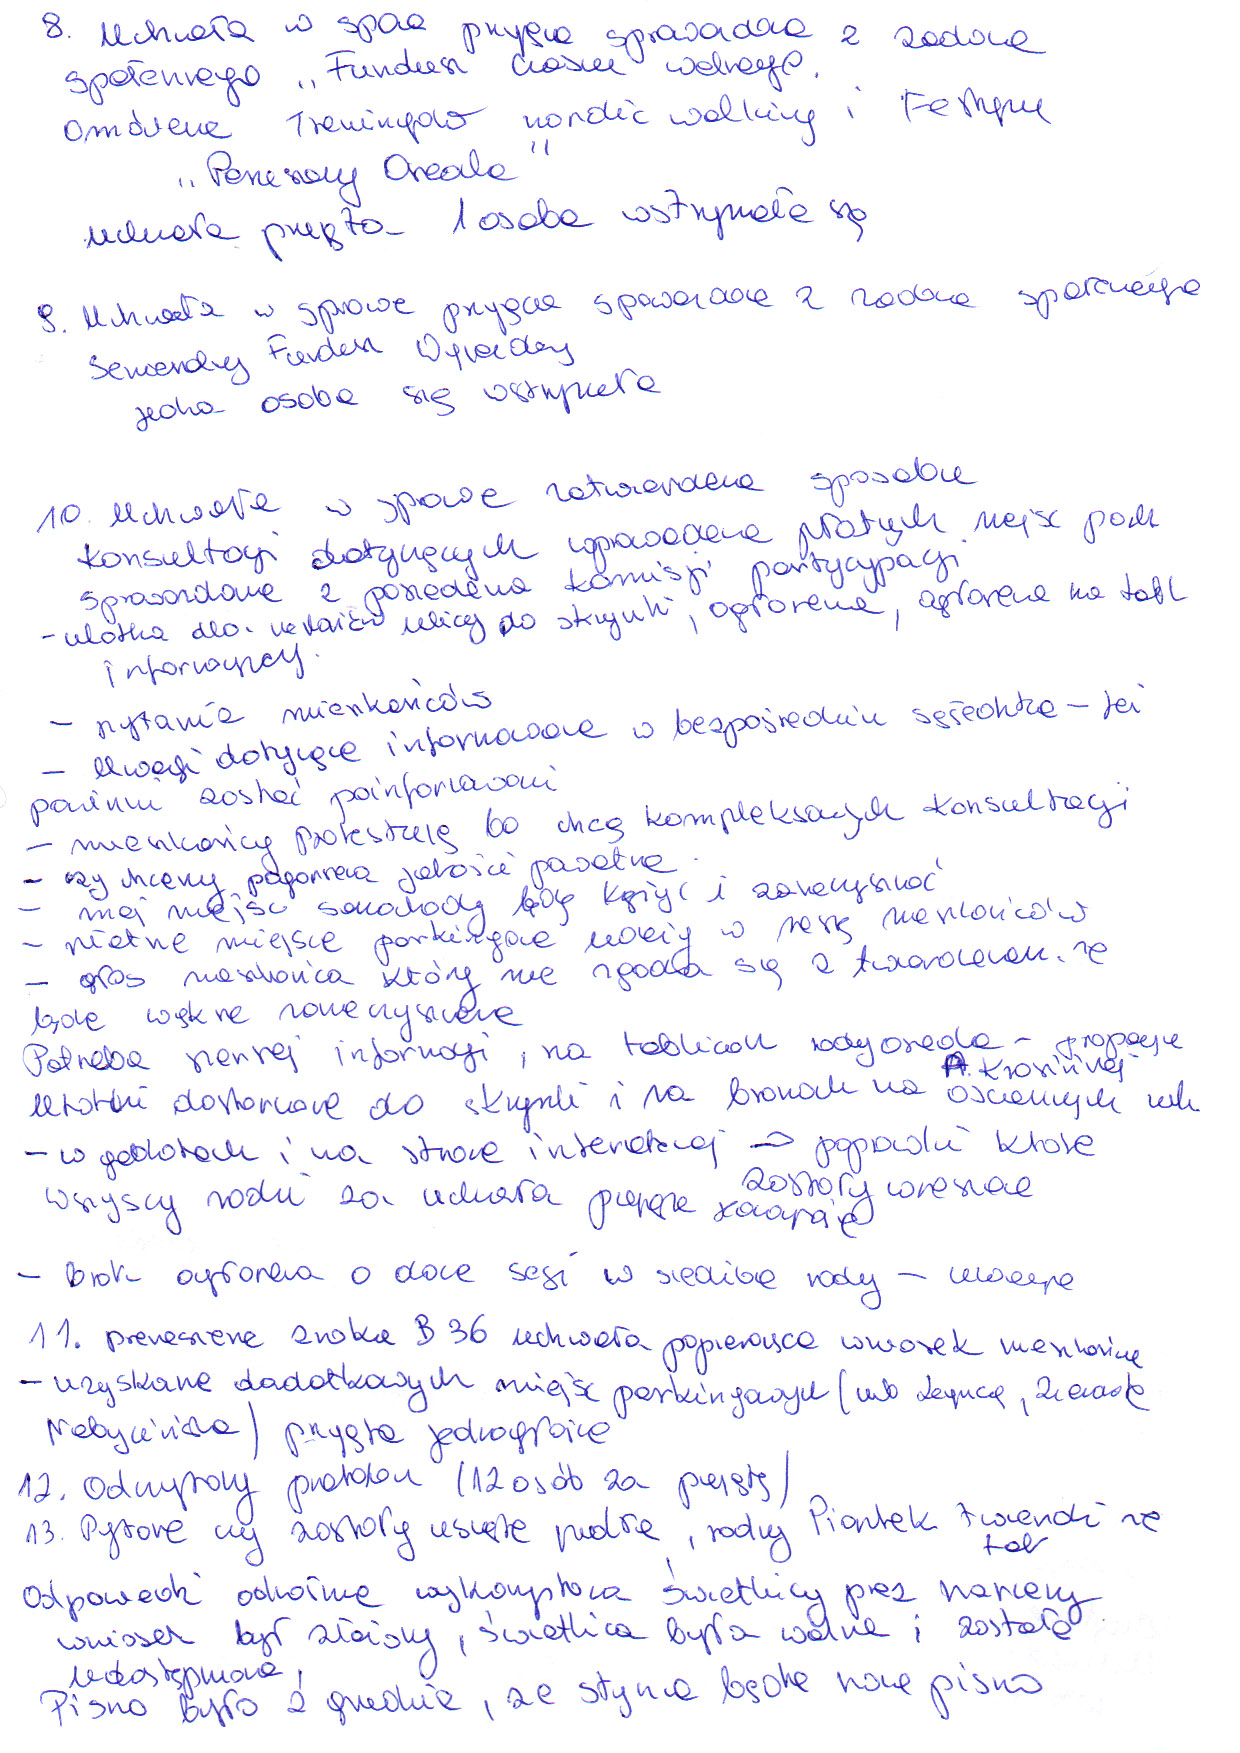 8. Uchwała w spraw przyjęcia sprawozdania z zadania
społecznego „Fundusz Czasu wolnego.
Omówienie Treningów nordic walking i Festynu
„Osiedla"
Uchwała przyjęta - 1 osoba wstrzymała się
9. Uchwała w sprawie przyjęcia sprawozdania z zadania społecznego
Senioralny Fundusz
jedna osoba się wstrzymała
10. Uchwała w sprawie zatwierdzenia sposobu
konsultacji dotyczących wprowadzenia płatnych miejsc park
sprawozdanie z posiedzenia komisji partycypacji
- ulotka do skrzynki, ogłoszenia, ogłoszenia na tabl
informacyjnej.
- pytania mieszkańców
- Uwagi dotyczące informowania w bezpośrednim sąsiedztwie - też
powinni zostać poinformowani
- mieszkańcy protestują bo chcą kompleksowych konsultacji
- czy chcemy pogorszenia jakości powietrza
- mniej miejsc samochody będą krążyć i zanieczyszczać
- płatne miejsca parkingowe uderzą w naszą mieszkańców
- głos mieszkańca który nie zgadza się z twierdzeniem, że
będzie większe zanieczyszczenie
Potrzeba szerszej informacji, na tablicach rady osiedla - propozycje
A. Krasińskiej
Ulotki dostarczane do skrzynki i na bramach na ościennych ulic
- w gablotach i na stronie internetowej → poprawki które
zostały wreszcie
wszyscy radni za uchwała przyjęta
- brak ogłoszenia o dacie sesji w siedzibie rady - uwaga
11. przeniesienie znaku B 36 uchwała popierająca wniosek mieszkańców
- uzyskanie dodatkowych miejsc parkingowych (
) przyjęta jednogłośnie
12. Odczytany protokół (12 osób za przyjęty)
13. Pytanie czy zostały usunięte pudła, radny Piontek twierdzi że
tak
Odpowiedź odnośnie wykorzystania świetlicy przez harcerzy
wniosek był złożony, świetlica była wolna i została
udostępniona,
Pismo było z grudnia, że styczniu będzie nowe pismo